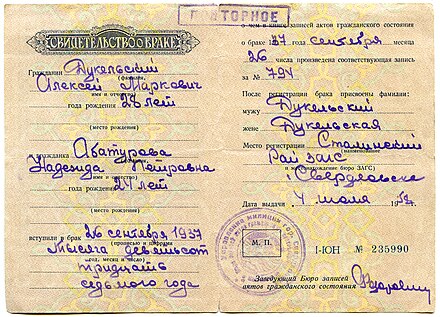 ПОВТОРНОЕ
СВИДЕТЕЛЬСТВО о БРАКЕ
Гражданин Дукельский
(фамилия,
Алексей Маркович
имя и отчество)
года рождения 28 лет
(место рождения)
гражданка Абатурова
Надежда Петровна
года рождения 24 лет
(место рождения)
вступили в брак 26 сентября 1937
(прописью и цифрами
Тысяча девятьсот
год, месяц и число)
тридцать
седьмого года
о чем в книге записей актов гражданского состояния
о браке 1937 года сентября месяца
26 числа произведена соответствующая запись
за № 794
После регистрации брака присвоены фамилии:
мужу Дукельский
жене Дукельская
Место регистрации Сталинский
Рай ЗАГС
и местонахождение бюро ЗАГС)
г. Свердловска
Дата выдачи 4 июля 195
М. П.
I-ЮН № 235990
Заведующий Бюро записей
актов гражданского состояния